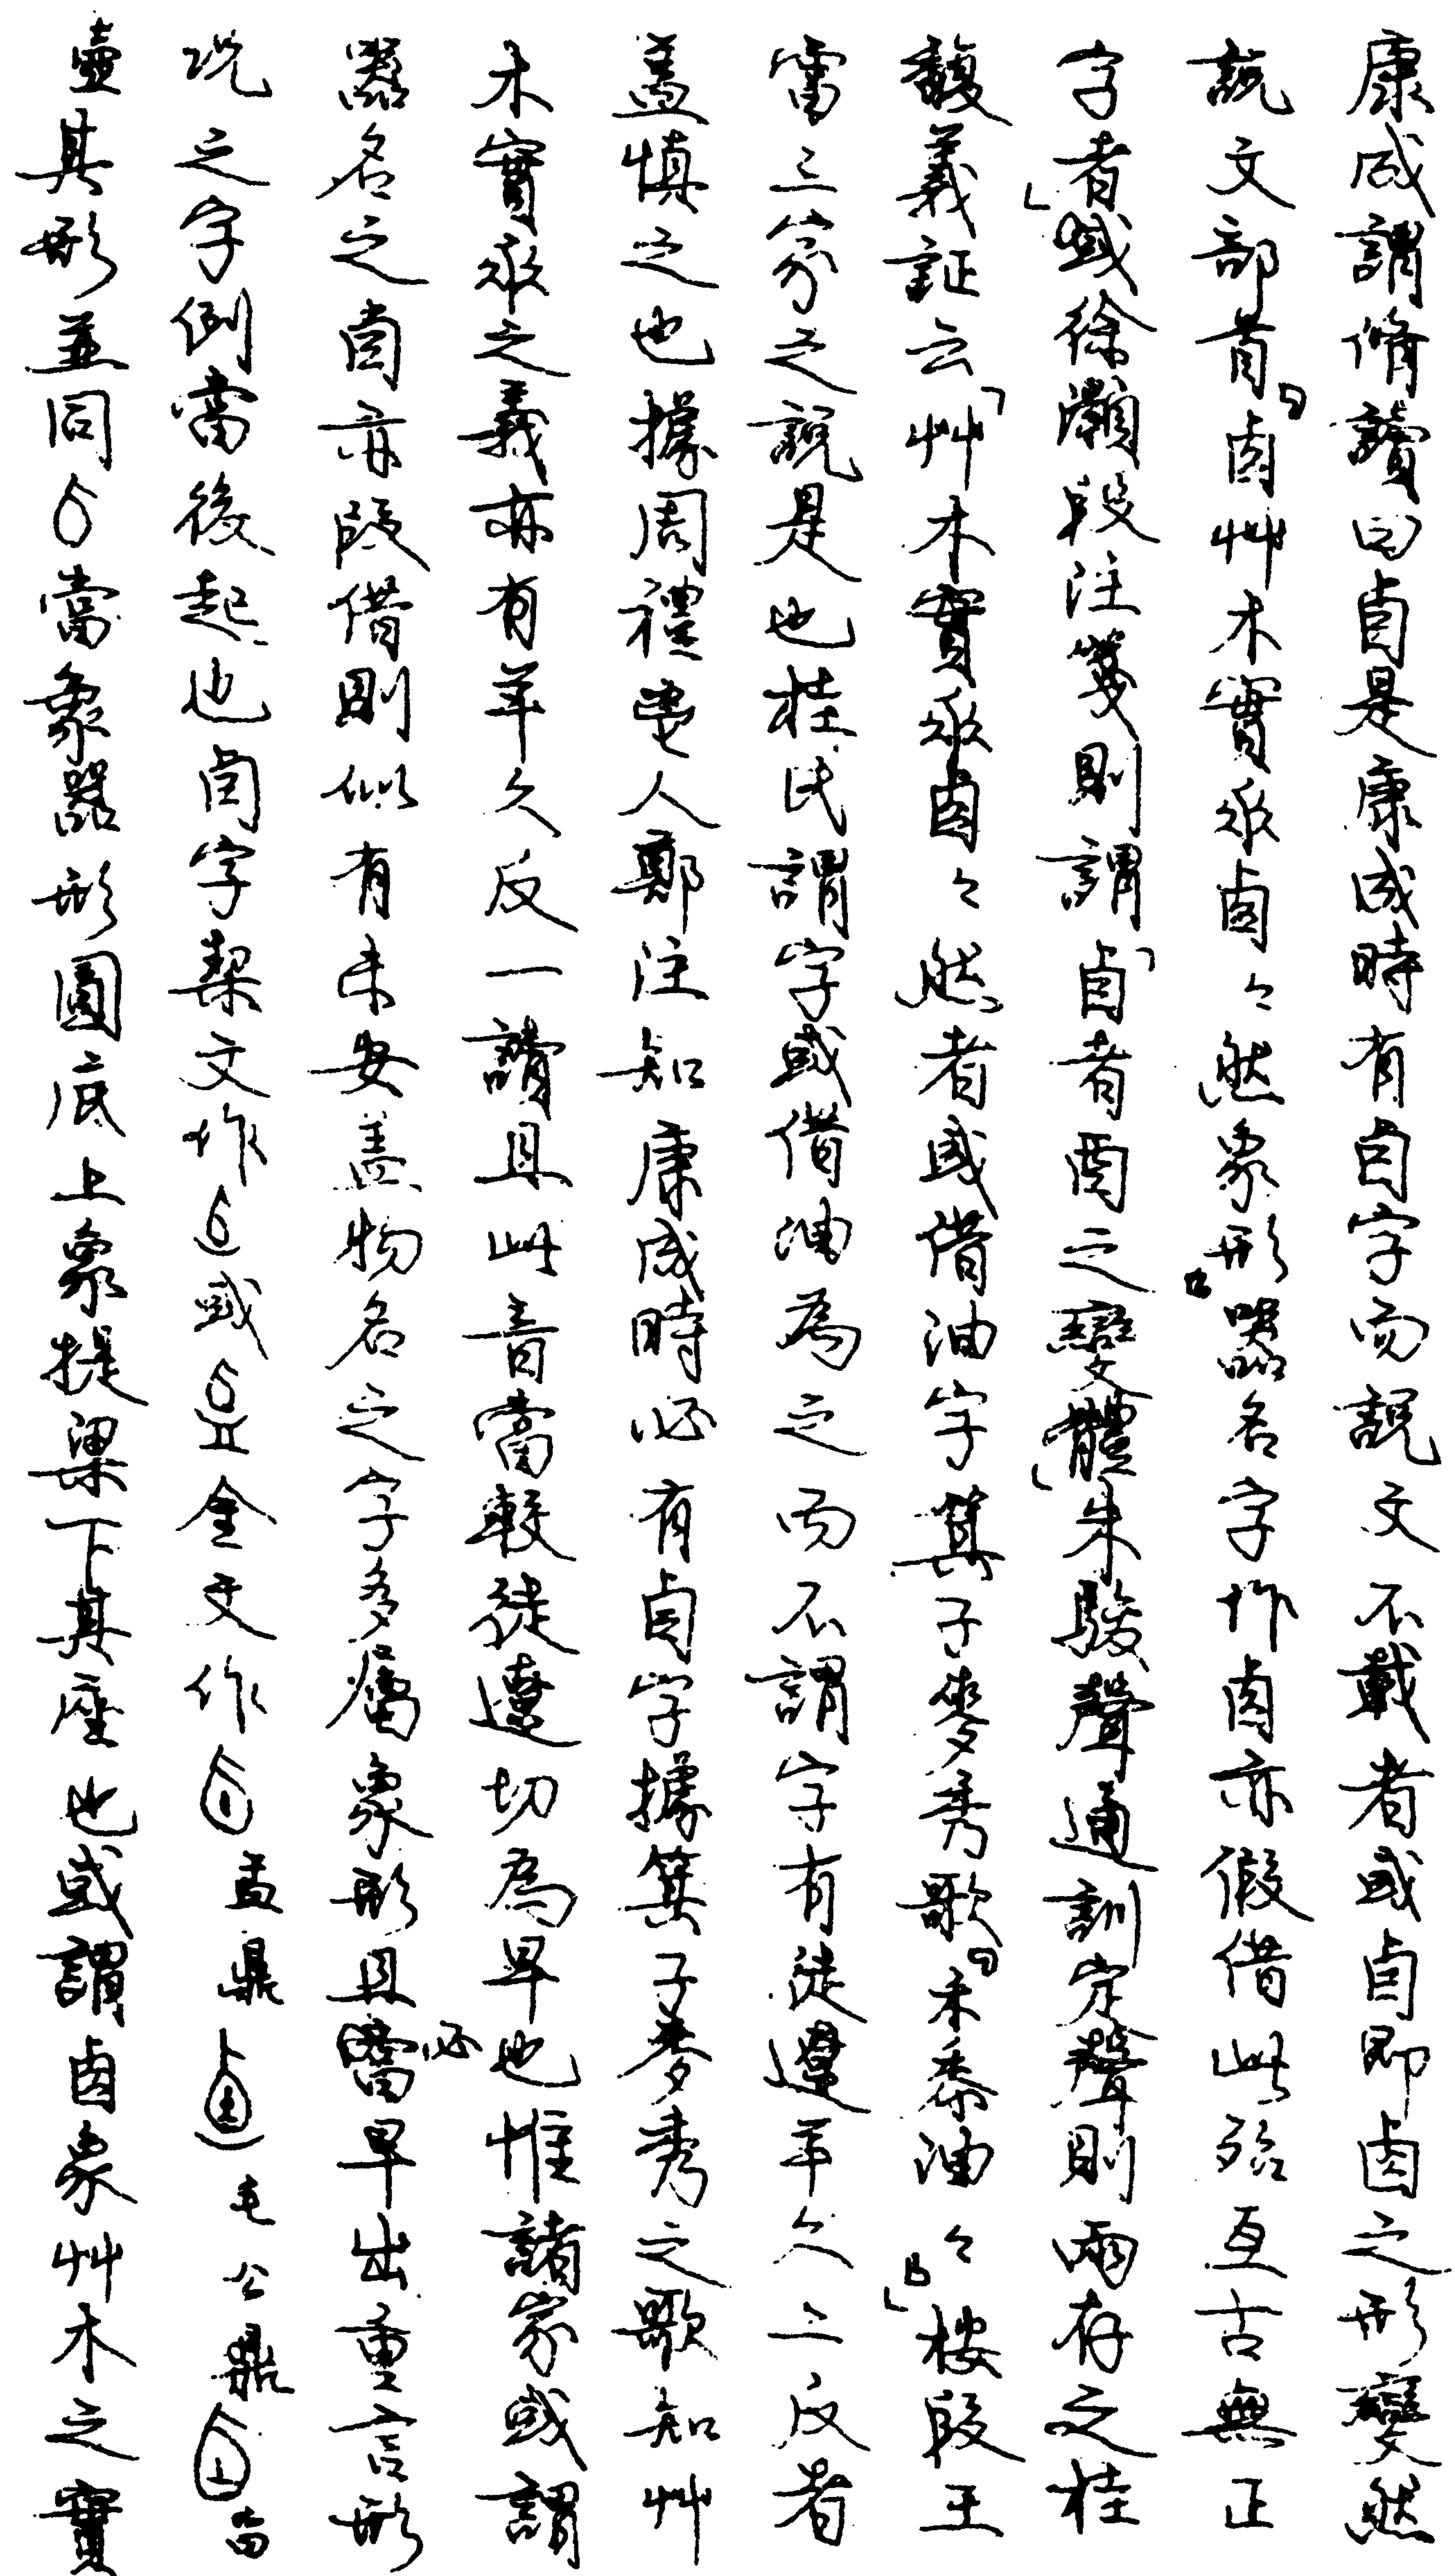 康成謂脩讀曰卣是康成時有卣字而說文不載者或卣即卤之形變然
說文部首『卤艸木實垂卤々然象形』器名字作卤亦假借此殆亙古無正
字者」或徐灝段注箋則謂「卣者卤之變體」朱駿聲通訓定聲則兩存之桂
馥義証云「艸木實垂卤々然者或借油字箕子麥秀歌『禾黍油々』」按段王
雷三家之說是也桂氏謂字或借油為之而不謂字有徒遼羊久二反者
蓋慎之也據周禮鬯人鄭注知康成時必有卣字據箕子麥秀之歌知艸
木實垂之義亦有羊久反一讀且此音當較徒遼切為早也惟諸家或謂
器名之卤亦叚借則似有未安蓋物名之字多屬象形且當必早出重言形
況之字例當後起也卤字栔文作或金文作盂鼎毛公鼎
壷其形並同當象器形圓底上象提梁下其座也或謂卤象艸木之實